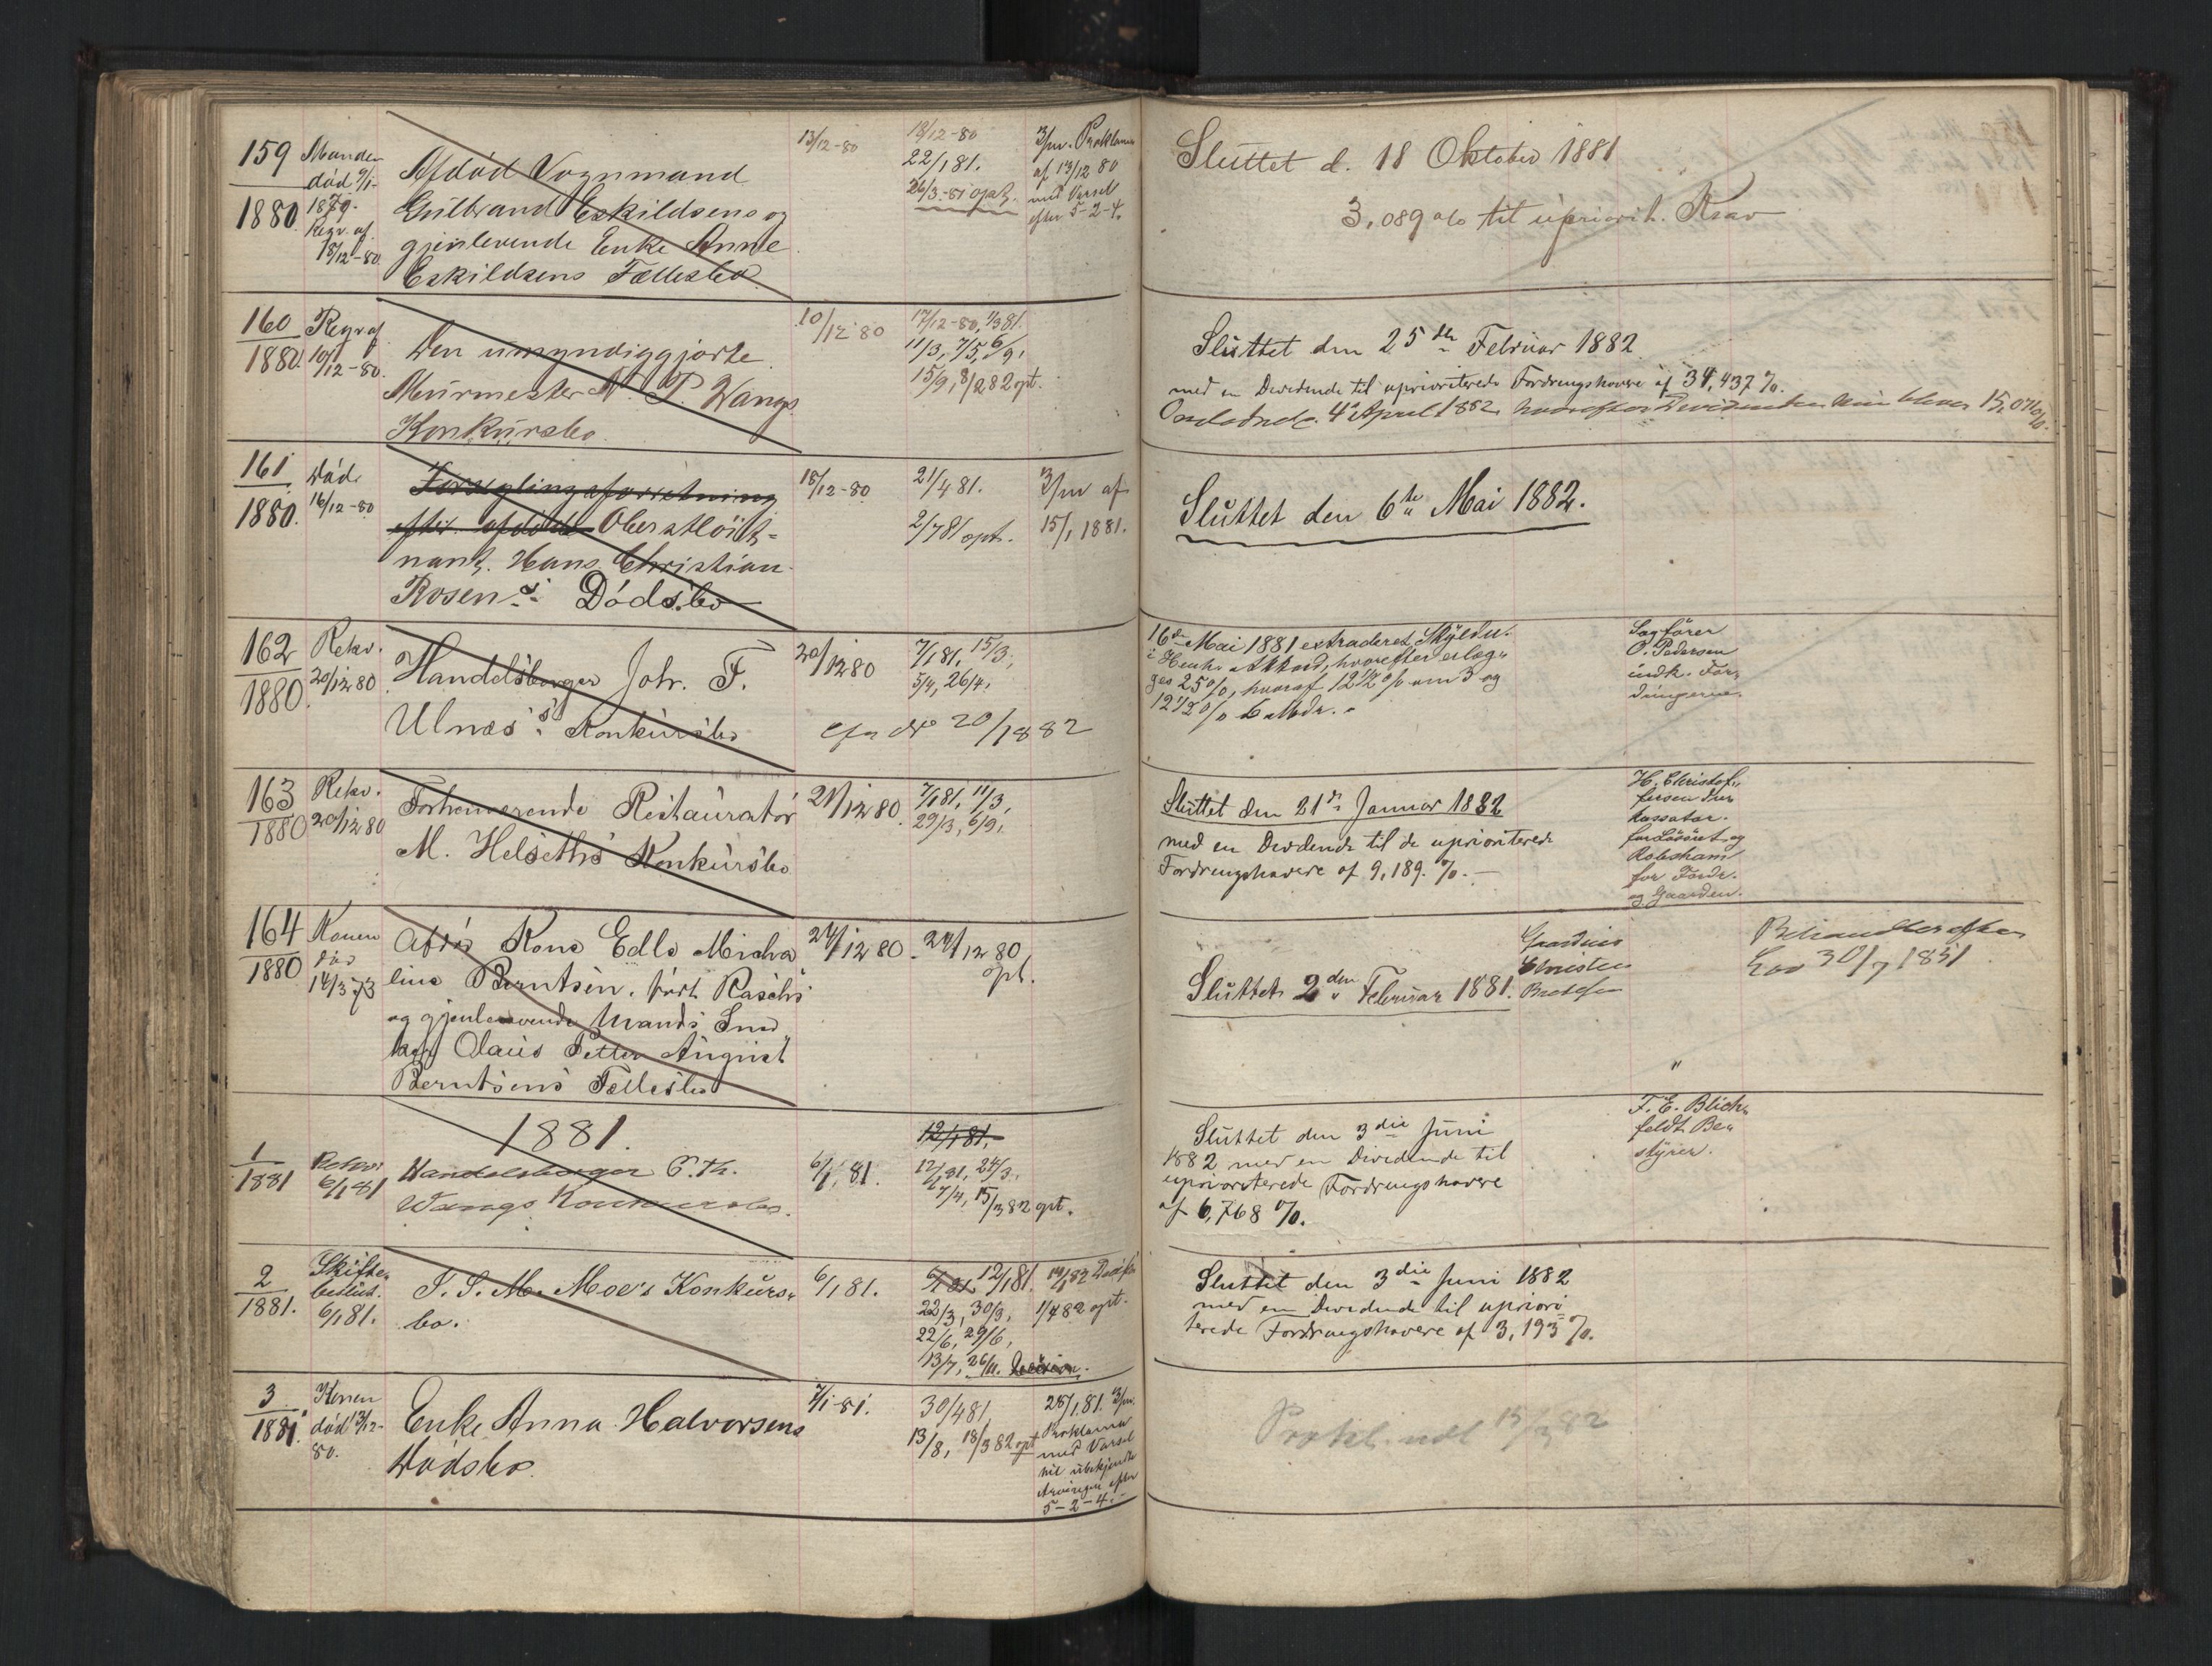 159
1880.
Manden
død 9/1-
1879.
Regv. af
18/12-80.
Afdød Vognmand
Gulbrand Eskildsens og
gjenlevende Enke Anne
Eskildsens Fællesbo.
13/12-80
18/12-80
22/1 81.
26/3-81 opt.
3/m. Proklama
af 13/12 80
med Varsel
efter 5-2-4.
Sluttet d. 18 Oktober 1881
3,089 % til upriorit. Krav
160
1880.
Regv. af
10/12-80.
Den umyndiggjorte
Murmester N. P. Wangs
Konkursbo.
10/12 80
17/12-80, 1/3 81.
11/3, 7/5, 6/9,
15/9, 8/2 82 opt.
Sluttet den 25de Februar 1882
med en Dividende til upriorterede Fordringshavere af 34,437 %.
Omlodnet d. 4de April 1882, hvorefter Dividenden kun bliver 15,07 %.
161
1880.
Død
16/12-80
Forseglingsforretning
efter afdøde Oberstløit-
nant Hans Christian
Rosens Dødsbo
18/12-80
21/4 81.
2/7 81 opt.
3/m af
15/1 1881.
Sluttet den 6te Mai 1882.
162
1880.
Rekv.
20/12 80
Handelsborger Joh. F.
Ulnæs's Konkursbo
20/12 80
7/1 81, 15/3,
5/4, 26/4,
20/1 82
16de Mai 1881 extraderet Skyldn.
i Henh. Akkord, hvorefter erlæg-
ges 25 %, hvoraf 12 1/2 % om 3 og
12 1/2 % 6 Mdr. -
Sagfører
O. Pedersen
indk. For-
dringerne.
163
1880
Rekv.
20/12 80
Forhenværende Restauratør
M. Helseths Konkursbo
21/12 80.
7/1 81, 11/3,
29/3, 6/9,
Sluttet den 21de Januar 1882
med en Dividende til de uprioriterede
Fordringshavere af 9,189. %. -
H. Christof-
fersen
Kassator.
for Løsøret og
Robsham
for Fordr.
og Gaarden.
164
1880
Konen
død
14/3 73
Afdø Kone Edle Micha
line Berntsen, født Raschs
og gjenlevende Mands Smed
Claus Petter August
Berntsens Fællesbo
24/12 80.
24/12 80
opt.
Sluttet 2den Februar 1881.
Christen
Behandles efter
Lov 30/7 1851
"
1881.
1
1881
Rekv.
6/1 81
Handelsborger P. Th.
Wangs Konkursbo.
6/1 81.
12/1 81.
12/1 81, 24/3,
7/4, 15/3 82 opt.
Sluttet den 3die Juni
1882 med en Dividende til
uprioriterede Fordringshavere
af 6,768 %.
F. E. Blich-
feldt Be-
styrer.
2
1881.
Skifte-
beslut.
6/1 81.
J. S. M. Moe's Konkurs-
bo.
6/1 81.
6/1 81 12/1 81.
22/3, 30/3,
22/6, 29/6,
13/7, 26/11. Decision.
1/4 82 opt.
Sluttet den 3die Juni 1882
med en Dividende til upriori
terede Fordringshavere af 3,193 %.
3
1881.
Konen
død 13/12-
80.
Enke Anna Halvorsens
Dødsbo.
7/1-81.
30/4 81
13/8, 18/3 82 opt
28/1 81. 3/m.
Proklama
med Varsel
til ubekjendte
Arvinger efter
5-2-4.-
Prokl. udl 15/3 82